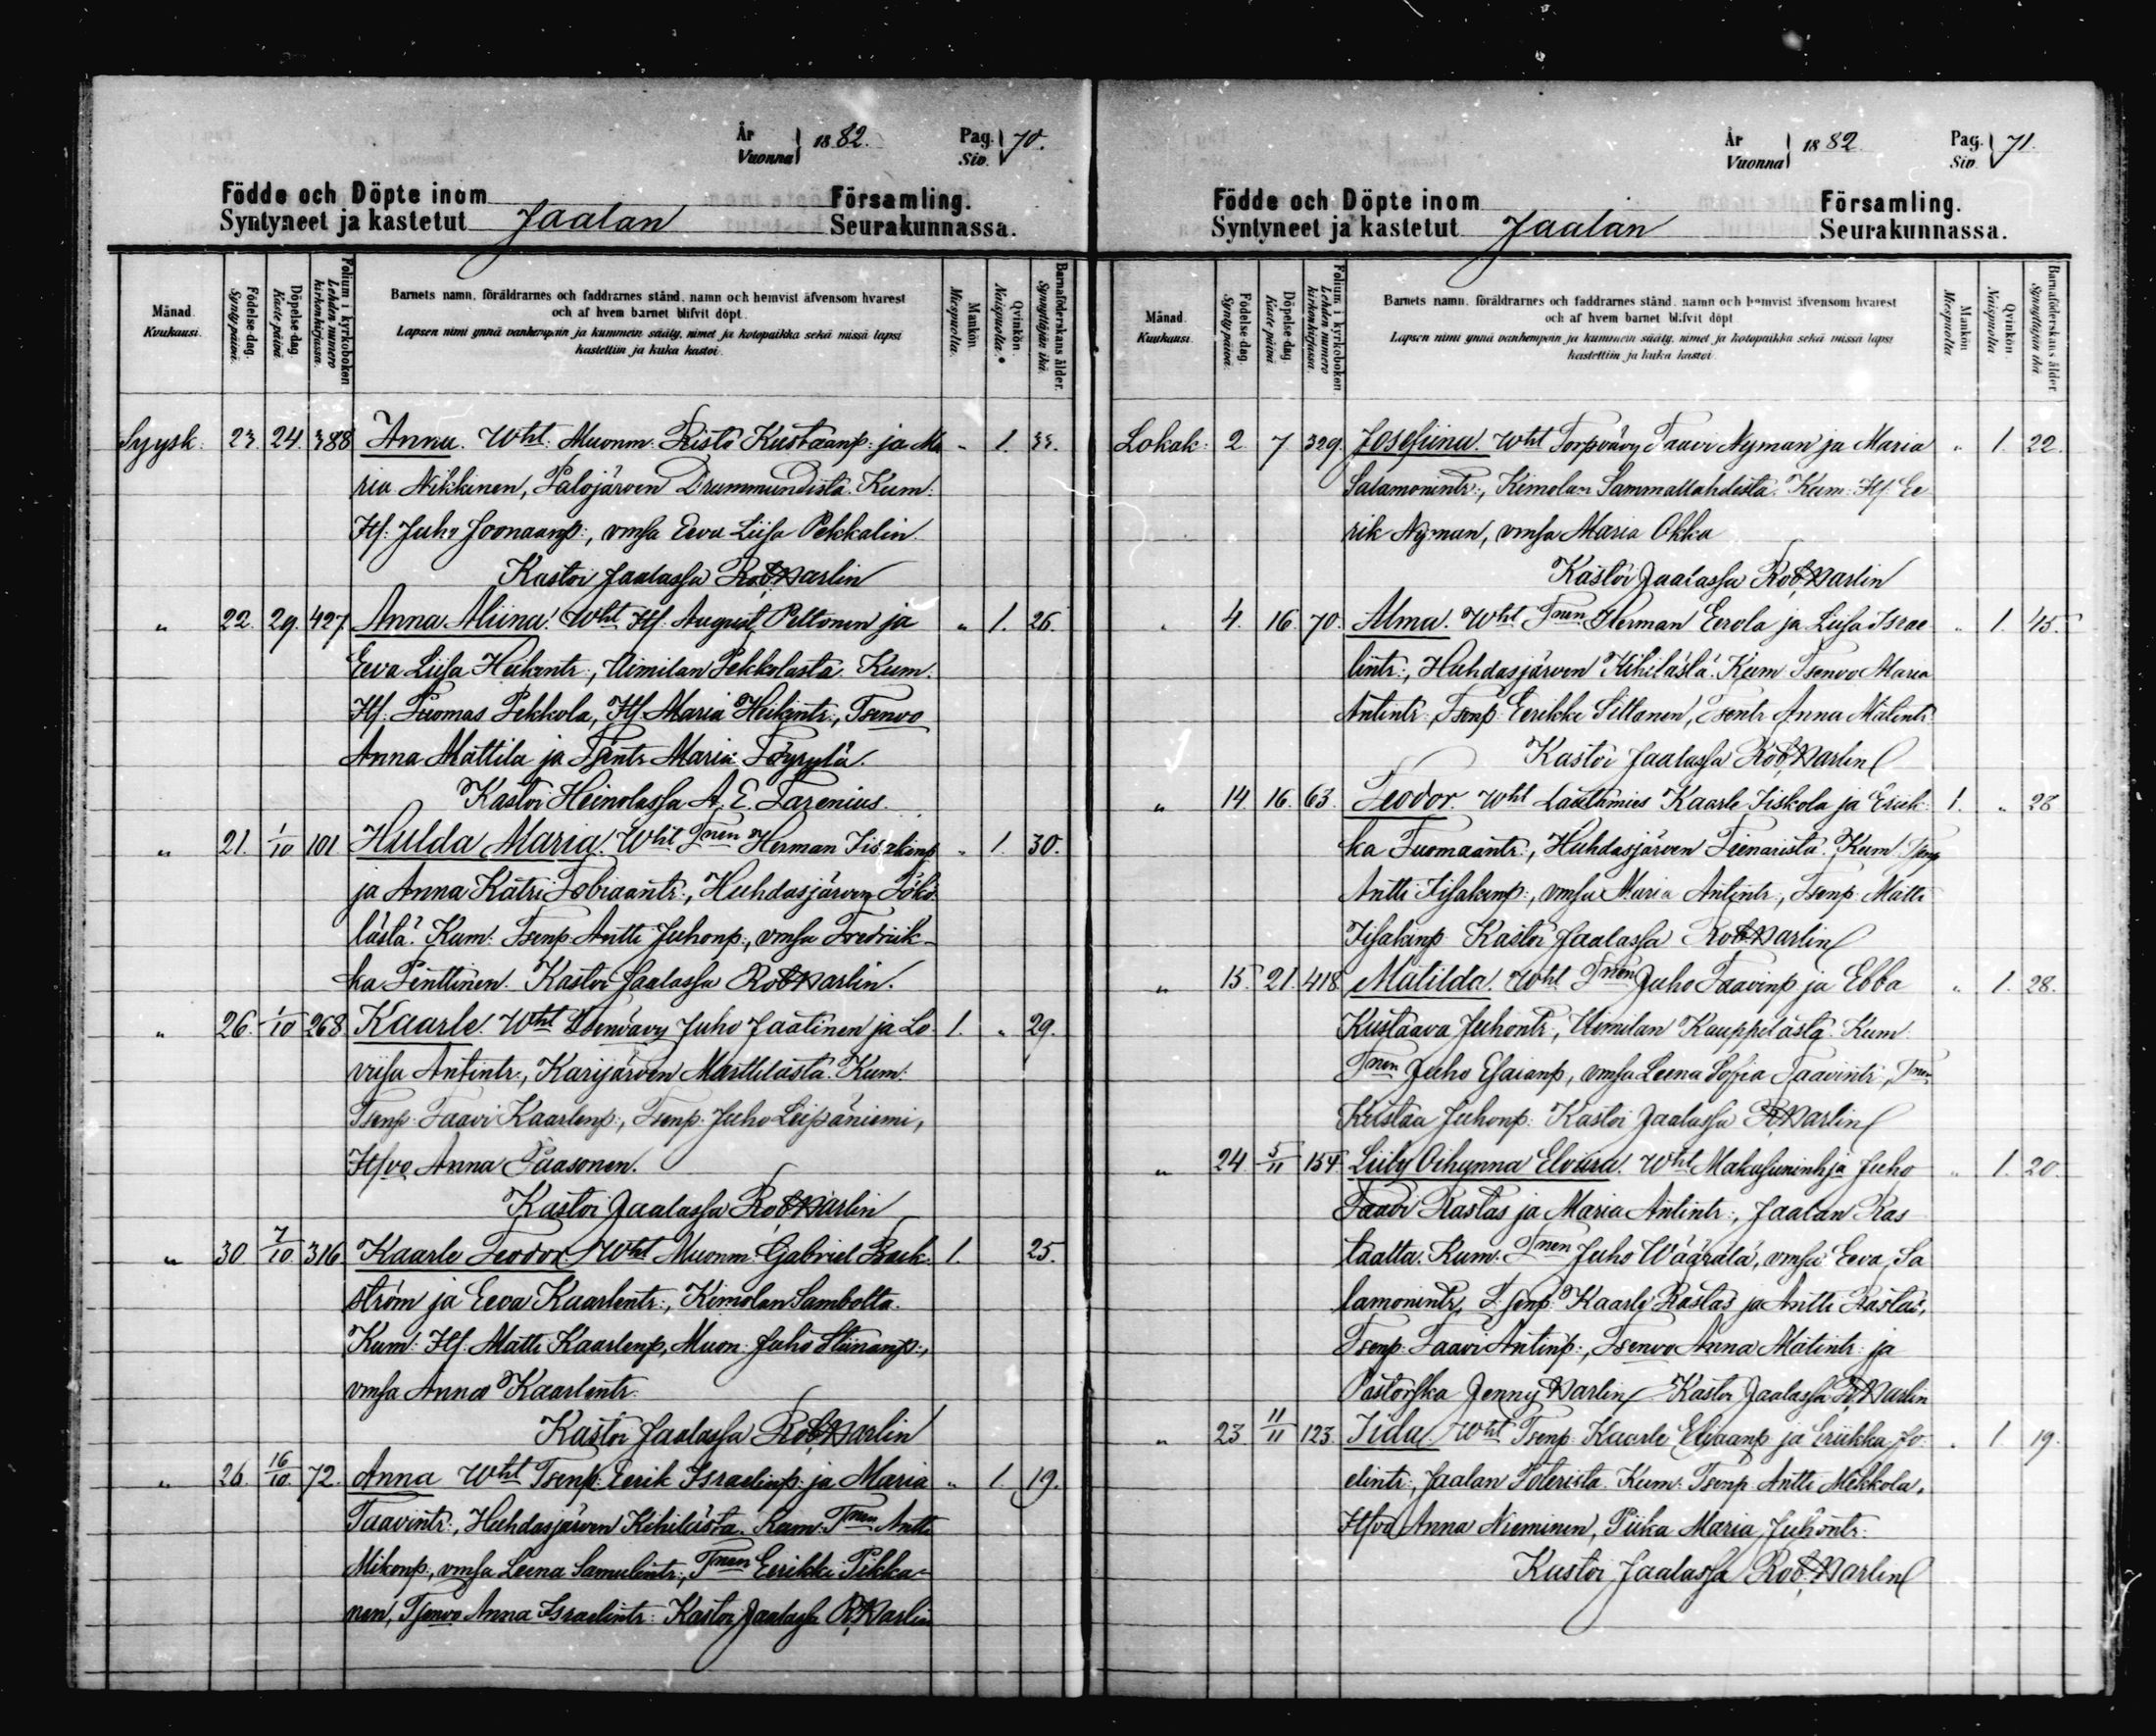 År
Vuonna 1882.
Pag.
Siv. 70.
Födde och Döpte inom Församling.
Syntyneet ja kastetut Jaalan Seurakunnassa.
Månad. Kuukausi.
Födelse-dag. Synty päivä.
Döpelse-dag. Kaste päivä.
Folium i kyrkoboken Lehden numero kirkonkirjassa.
Barnets namn, föräldrarnes och faddrarnes stånd, namn och hemvist äfvensom hvarest
och af hvem barnet blifvit döpt.
Lapsen nimi ynnä vanhempain ja kummein sääty, nimet ja kotopaikka sekä missä lapsi
kastettiin ja kuka kastoi.
Mankön. Miespuolia.
Qvinkön. Naispuolia.
Barnaföderskans ålder. Synnyttäjän ikä.
Syysk. 23. 24. 388 Anna. Wht. Muonm. Risto Kustaanp. ja Ma „ 1. 33.
ria Nikkinen, Palojärven Drummundista. Kum:
Itf. Juho Joonaanp:, vmsa Eeva Liisa Pekkalin.
Kastoi Jaalassa Rob. Warlin
„ 22. 29. 427 Anna Aliina. Wht Itf. August Peltonen ja „ 1. 26.
Eeva Liisa Heikintr:, Uimilan Pekkolasta. Kum.
Itf. Tuomas Pekkola, Itf. Maria Heikintr., Tsenvo
Anna Mattila ja Tsentr Maria Töyrylä.
Kastoi Heinolassa A. E. Zarenius.
„ 21. 1/10 101 Hulda Maria. Wht Tnen Herman Iisakinp „ 1. 30.
ja Anna Katri Tobiaantr:, Huhdasjärven Pökö-
lästä. Kum: Tsenp Antti Juhonp., vmsa Fredriik-
ka Penttinen. Kastoi Jaalassa Rob Warlin.
„ 26. 1/10 268 Kaarle. Wht Tsenvävy Juho Jaatinen ja Lo- 1. „ 29.
viisa Antintr., Karijärven Marttilasta. Kum:
Tsenp. Taavi Kaarlenp:, Tsenp. Juho Leipäniemi,
Itfvo Anna Paasonen.
Kastoi Jaalassa Rob Warlin
„ 30. 7/10 316 Kaarle Teodor. Wht Muonm. Gabriel Back- 1. 25.
ström ja Eeva Kaarlentr:, Kimolan Sambolta.
Kum: Itf. Matti Kaarlenp, Muon. Juho Stiinanp:,
vmsa Anna Kaarlentr.
Kastoi Jaalassa Rob Warlin
„ 26. 16/10 72. Anna Wht Tsenp. Eerik Israelinp. ja Maria „ 1. 19.
Taavintr:, Huhdasjärven Kihilästä. Kum: Tnen Antti
Mikonp., vmsa Leena Samulintr:, Tnen Eerikki Pikka-
nen, Tsenvo Anna Israelintr. Kastoi Jaalassa R. Warlin
År
Vuonna 1882.
Pag.
Siv. 71.
Födde och Döpte inom Församling.
Syntyneet ja kastetut Jaalan Seurakunnassa.
Månad. Kuukausi.
Födelse-dag. Synty päivä.
Döpelse-dag. Kaste päivä.
Folium i kyrkoboken Lehden numero kirkonkirjassa.
Barnets namn, föräldrarnes och faddrarnes stånd, namn och hemvist äfvensom hvarest
och af hvem barnet blifvit döpt
Lapsen nimi ynnä vanhempain ja kummein sääty, nimet ja kotopaikka sekä missä lapsi
kastettiin ja kuka kastoi.
Mankön Miespuolia
Qvinkön. Naispuolia
Barnaföderskans ålder. Synnyttäjän ikä
Lokak: 2. 7. 329. Josefiina. Wht Torpvävy Taavi Nyman ja Maria „ 1. 22.
Salamonintr:, Kimolan Sammallahdista. Kum: Itf. Ee-
rik Nyman, vmsa Maria Okka
Kastoi Jaalassa Rob Warlin
„ 4. 16. 70. Alma. Wht Tnen Herman Eerola ja Liisa Israe „ 1. 45.
lintr:, Huhdasjärven Kihilästä. Kum Tsenvo Maria
Antintr., Tsenp: Eerikki Siltanen, Tsentr Anna Matintr.
Kastoi Jaalassa Rob Warlin
„ 14. 16. 63. Teodor. Wht Lautamies Kaarle Iiskola ja Eriik- 1. „ 28
ka Tuomaantr:, Huhdasjärven Tienarista. Kum: Tsenp
Antti Iisakinp:, vmsa Maria Antintr., Tsenp. Matti
Iisakinp Kastoi Jaalassa Rob Warlin
„ 15. 21. 418 Matilda. Wht Tnen Juho Taavinp. ja Ebba „ 1. 28.
Kustaava Juhontr., Uimilan Kauppilasta. Kum
Tnen Juho Esaianp, vmsa Leena Sofia Taavintr., Tnen
Kustaa Juhonp. Kastoi Jaalassa R. Warlin
„ 24. 5/11 154. Liily Elviira. Wht Makasuninhja Juho „ 1. 20.
Taavi Rastas ja Maria Antintr:, Jaalan Ras-
taalta. Kum: Tnen Juho Wäärälä, vmsa Eeva Sa
lamonintr, Tsenp: Kaarle Rastas ja Antti Rastas,
Tsenp. Taavi Antinp:, Tsenvo Anna Matintr: ja
Pastorska Jenny Warlin Kastoi Jaalassa R. Warlin
„ 23. 11/11 123. Iida. Wht Tsenp. Kaarle Eljaanp ja Eriikka Jo- „ 1. 19.
elintr:, Jaalan Poterista. Kum: Tsenp. Antti Mekkola,
Itfvo Anna Nieminen, Piika Maria Juhontr.
Kastoi Jaalassa Rob Warlin